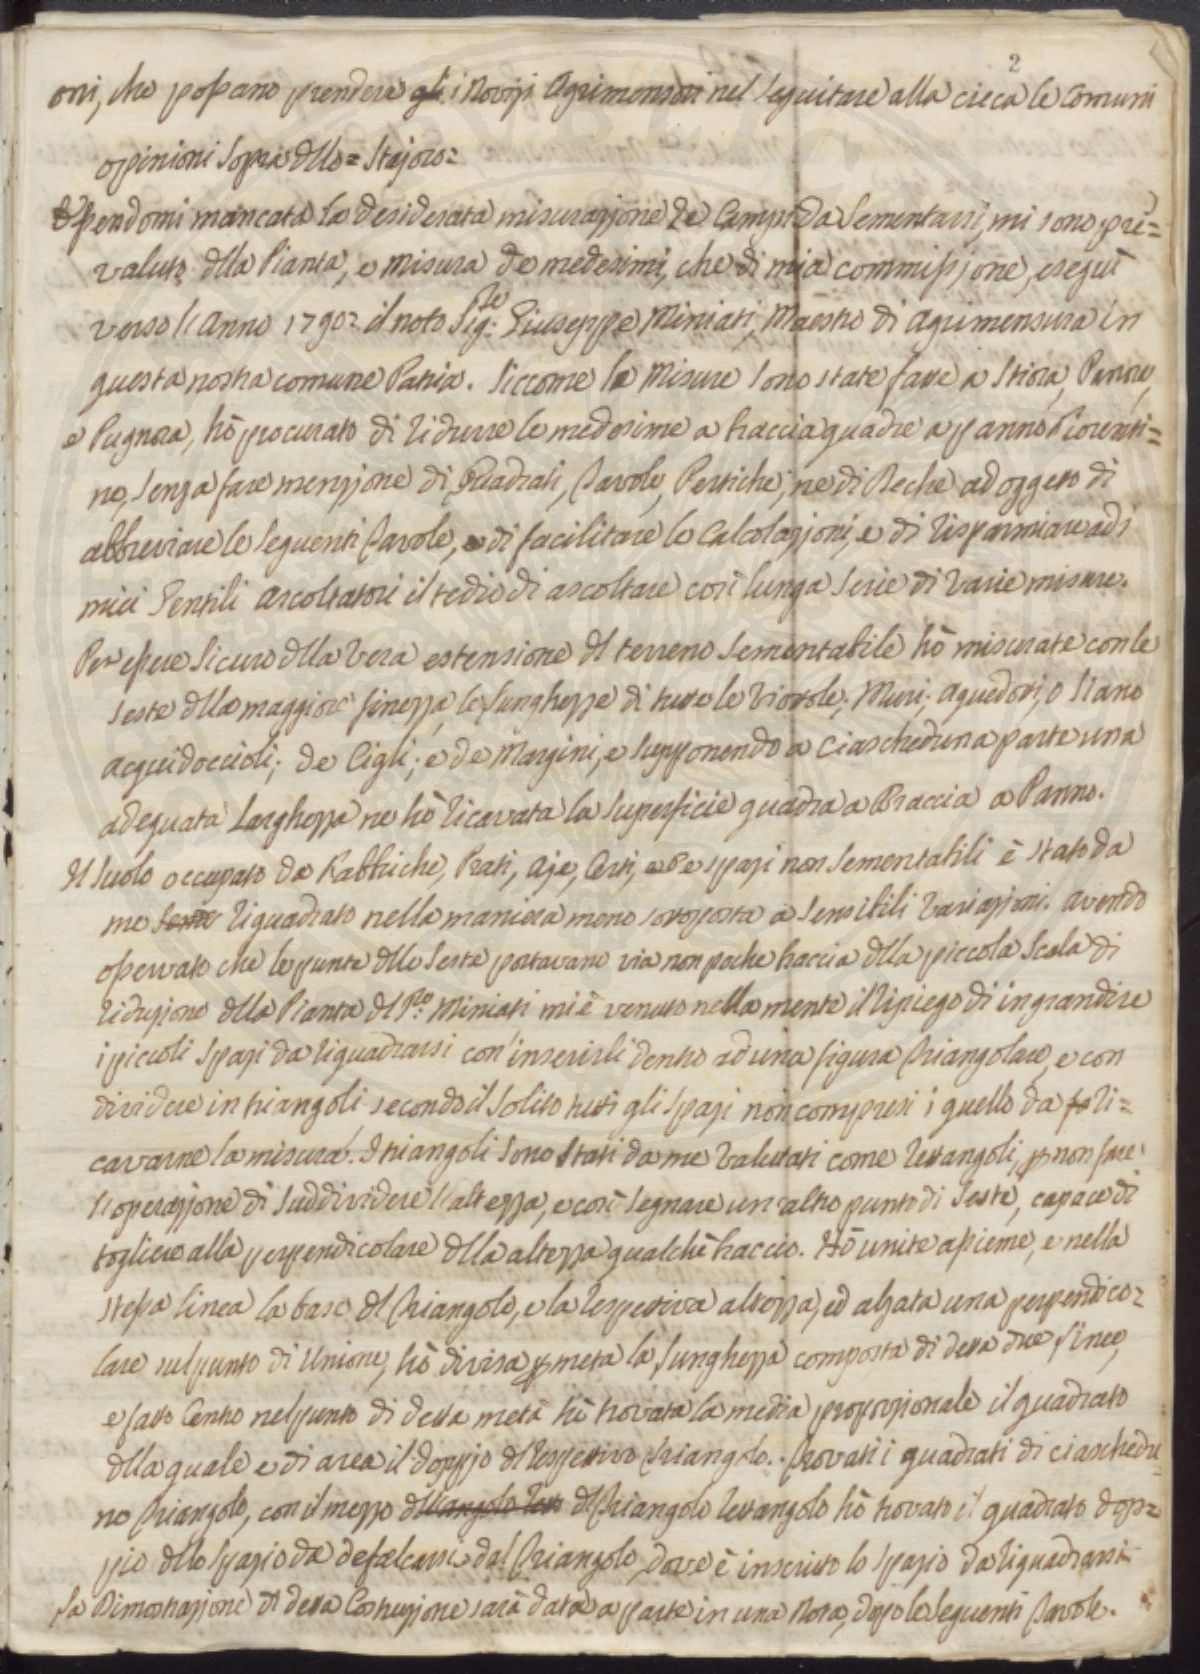 2
oni, che possano prendere gli i Novizj Agrimensori nel seguitare alla cieca le Comuni
opinioni sopra dllo = Stajoro =
Essendomi mancata la desiderata misurazzione de Campi da Sementarsi, mi sono pre=
valuto dlla Pianta, e misura de medesimi, che di mia commissione, eseguì
verso l'Anno 1790 = il noto Sig:re Giuseppe Miniati, Maestro di Agrimensura in
questa nostra comune Patria. Siccome le Misure sono state fatte a Stiora, Panora,
e Pugnora, hò procurato di ridurre le medesime a braccia quadre a panno Fiorenti=
no, senza fare menzione di Quadrati, Tavole, Pertiche, ne di Deche ad oggetto di
abbreviare le seguenti Tavole, e di facilitare le Calcolazzioni, e di risparmiare adi
miei Gentili ascoltatori il tedio di ascoltare così lunga serie di varie misure.
Per essere sicuro dlla vera estensione dl terreno sementabile hò misurate con le
seste dlla maggiore finezza, le lunghezze di tutte le Viottole; Muri; aquedotti, o siano
acquidoccioli; de Cigli; e de Margini, e supponendo a ciascheduna parte una
adeguata larghezza ne hò ricavata la superficie quadra a Braccia a Panno.
Il suolo occupato da Fabbriche, Prati, Aje, Orti, e de spazi non sementabili è stato da
me riquadrato nella maniera meno sottoposta a sensibili variazioni. avendo
osservato che le punte dlle seste portavano via non poche braccia dlla piccola Scala di
riduzione dlla Pianta dl Pto: Miniati mi è venuto nella mente il ripiego di ingrandire
i piccoli spazi da riquadrarsi con' inscrirli dentro ad una figura triangolare, e con
dividere in triangoli secondo il solito tutti gli spazi non compresi i quello da ri=
cavarne la misura. I triangoli sono stati da me valutati come rettangoli, p non fare
l'operazzione di suddividere l'altezza, e così segnare un altro punto di seste, capace di
togliere alla perpendicolare dlla altezza qualchè braccio. Hò unite assieme, e nella
stessa linea la base dl triangolo, e la respettiva altezza, ed alzata una perpendico=
lare sul punto di Unione, hò divisa p metà la lunghezza composta di dette due linee,
e fatto Centro nel punto di detta metà hò trovata la media proporzionale il quadrato
dlla quale e di area il doppio dl respettivo triangolo. Trovati i quadrati di ciaschedu=
no triangolo, con il mezzo dll'angolo retto dl triangolo rettangolo hò trovato il quadrato dop=
pio dllo spazio da defalcarsi dal triangolo, dove è inscritto lo spazio da riquadrarsi
La Dimostrazzione di detta Costruzzione sarà data a parte in una Nota, dopo le seguenti Tavole.